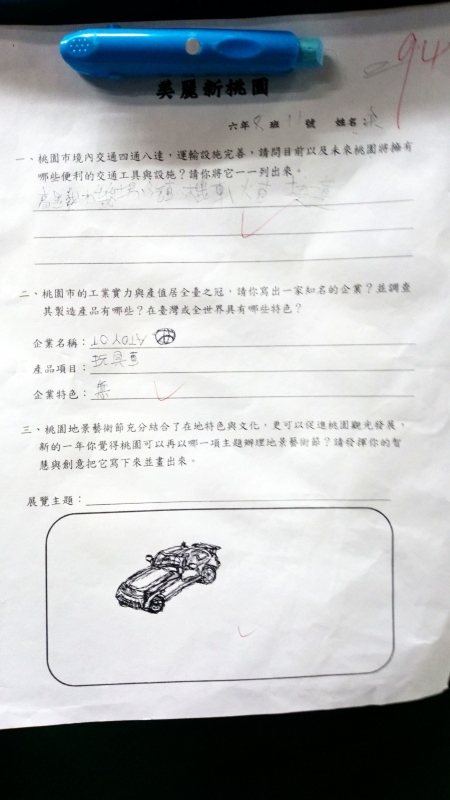 美麗新桃園
94
六年 8 班 11 號 姓名
一、桃園市境內交通四通八達，運輸設施完善，請問目前以及未來桃園將擁有
哪些便利的交通工具與設施？請你將它一一列出來。
二、桃園市的工業實力與產值居全臺之冠，請你寫出一家知名的企業？並調查
其製造產品有哪些？在臺灣或全世界具有哪些特色？
企業名稱：TOYOTA
產品項目：玩具車
企業特色：無
三、桃園地景藝術節充分結合了在地特色與文化，更可以促進桃園觀光發展，
新的一年你覺得桃園可以再以哪一項主題辦理地景藝術節？請發揮你的智
慧與創意把它寫下來並畫出來。
展覽主題：